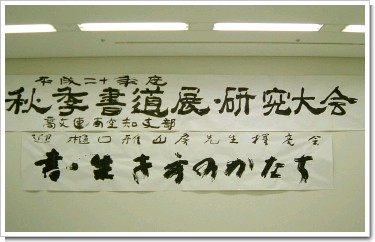 平成二十年度
秋季書道展・研究大会
高文連南空知支部
迎 樋口雅山房先生揮毫会
書・生き方のかたち